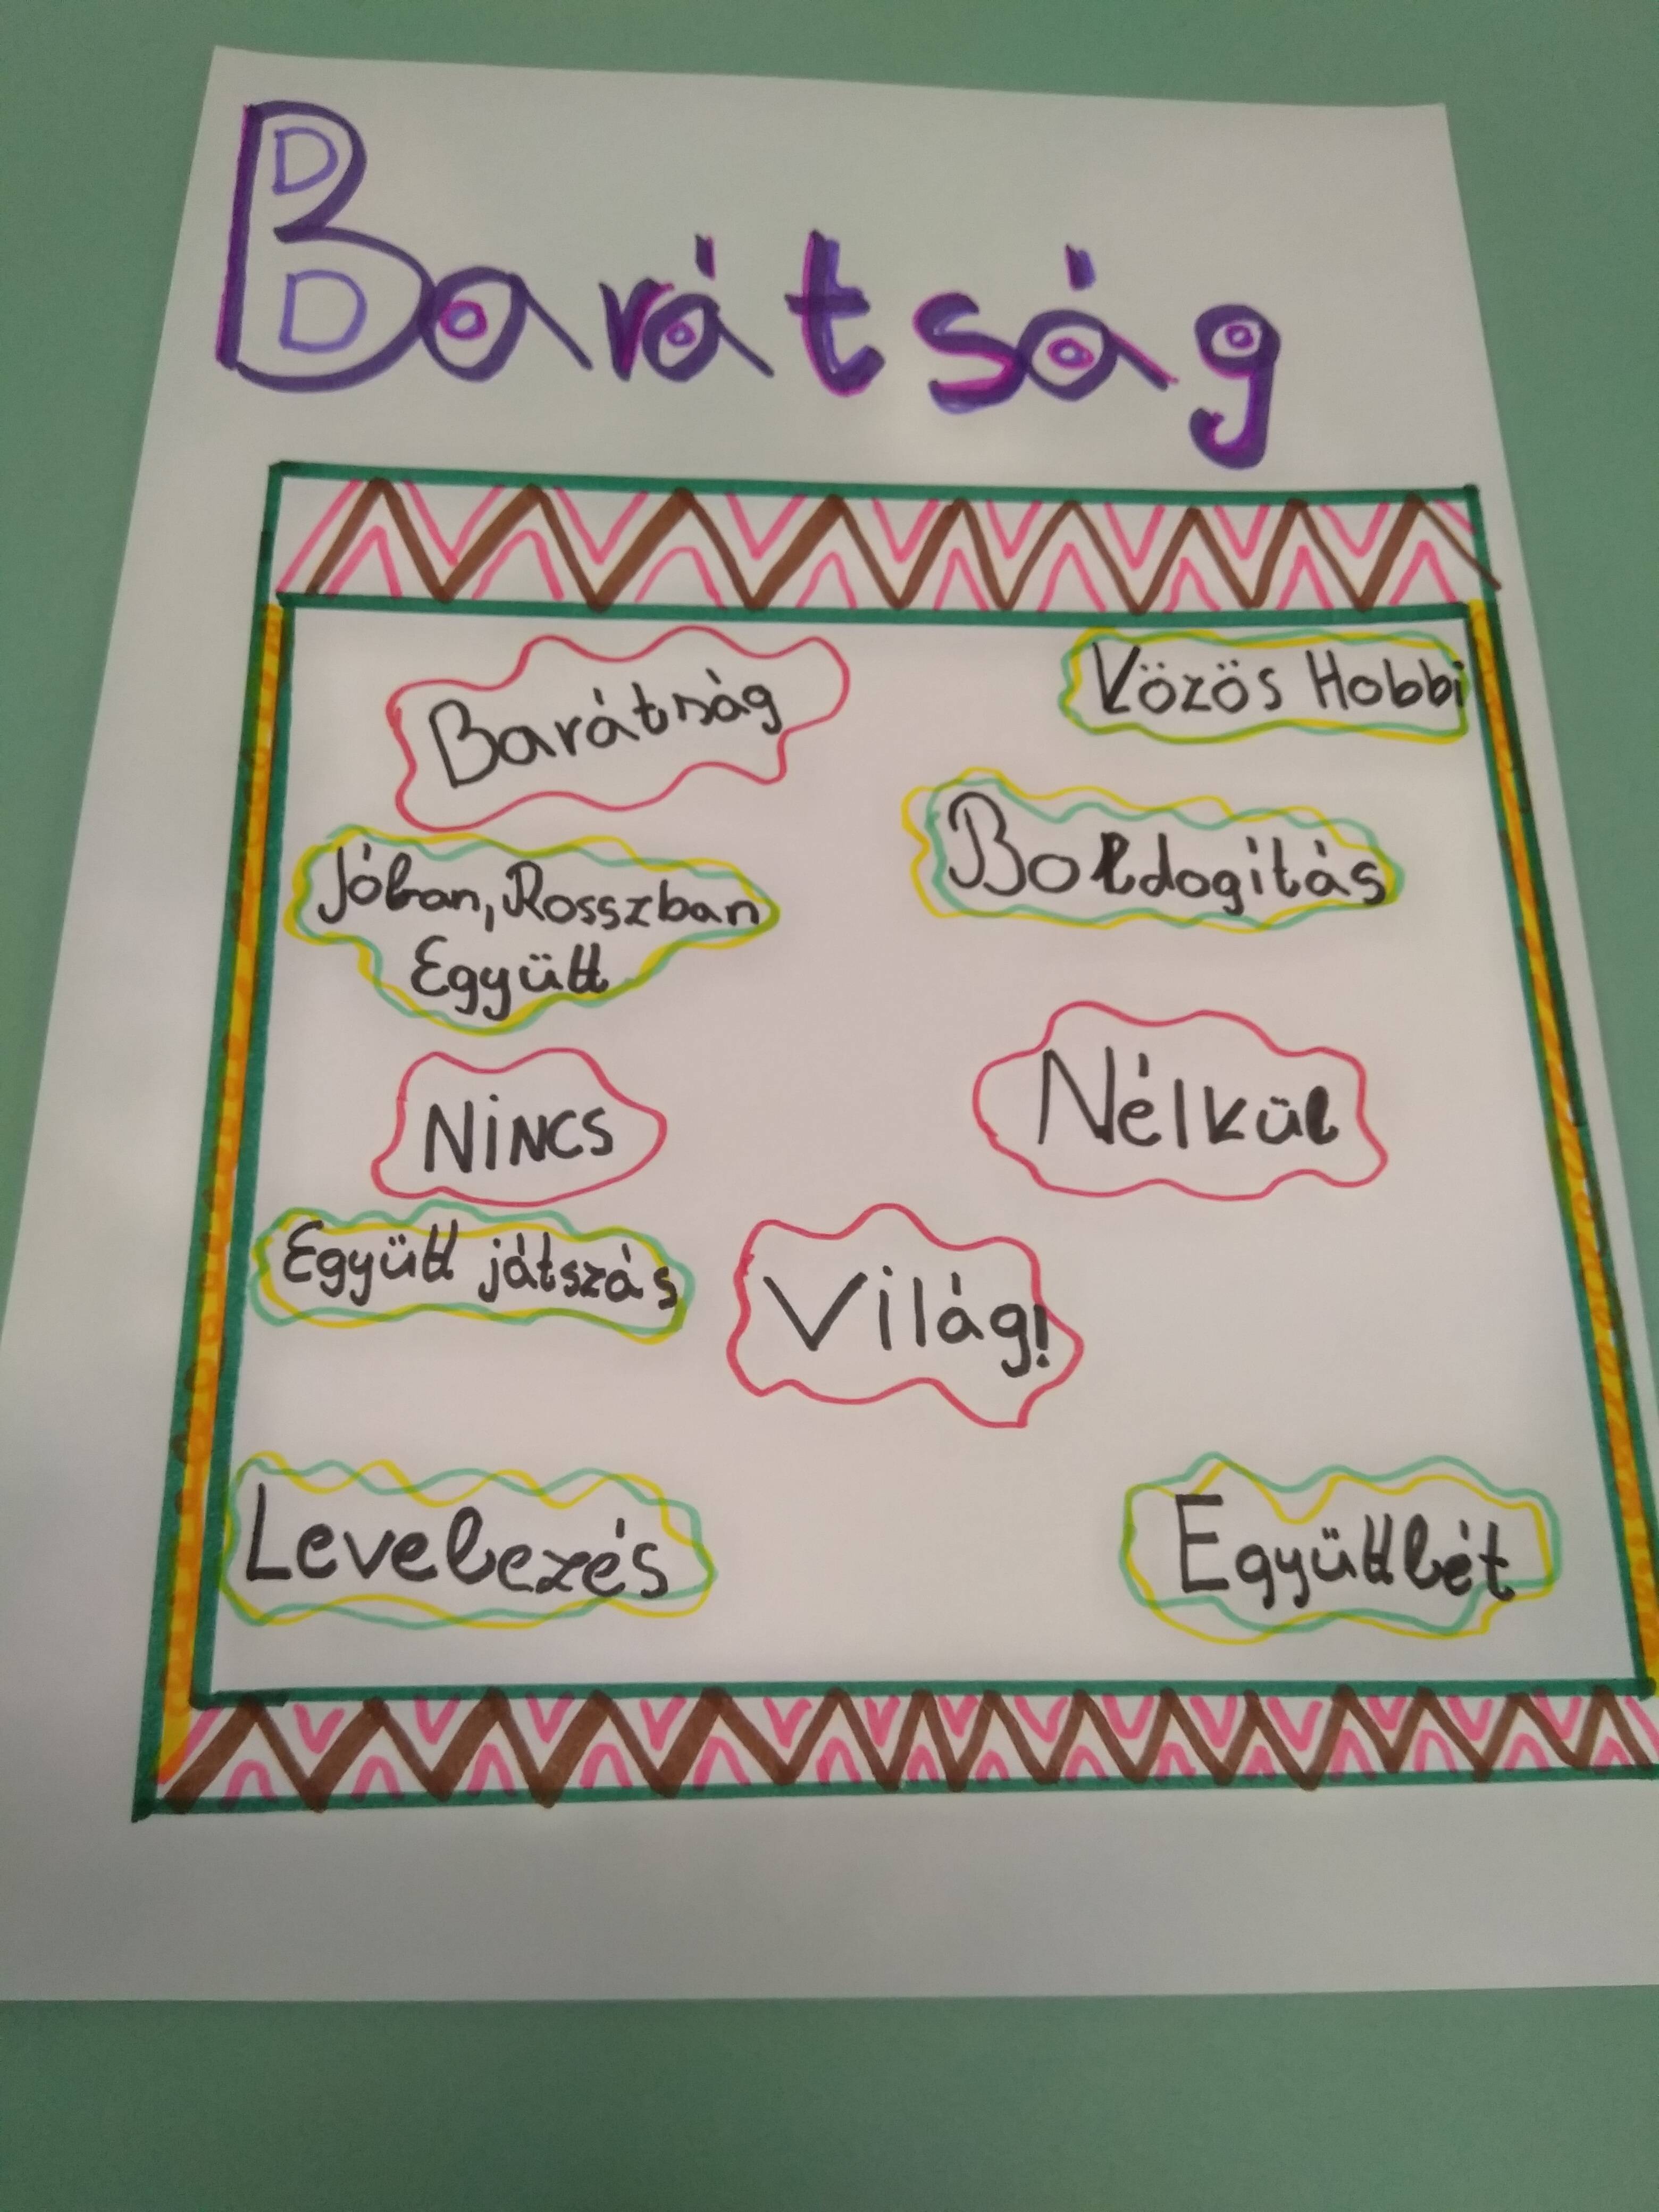 Barátság
Barátság
Közös Hobbi
Boldogítás
Jóban, Rosszban
Együtt
Nincs
Nélkül
Együtt játszás
Világ!
Levelezés
Együttlét